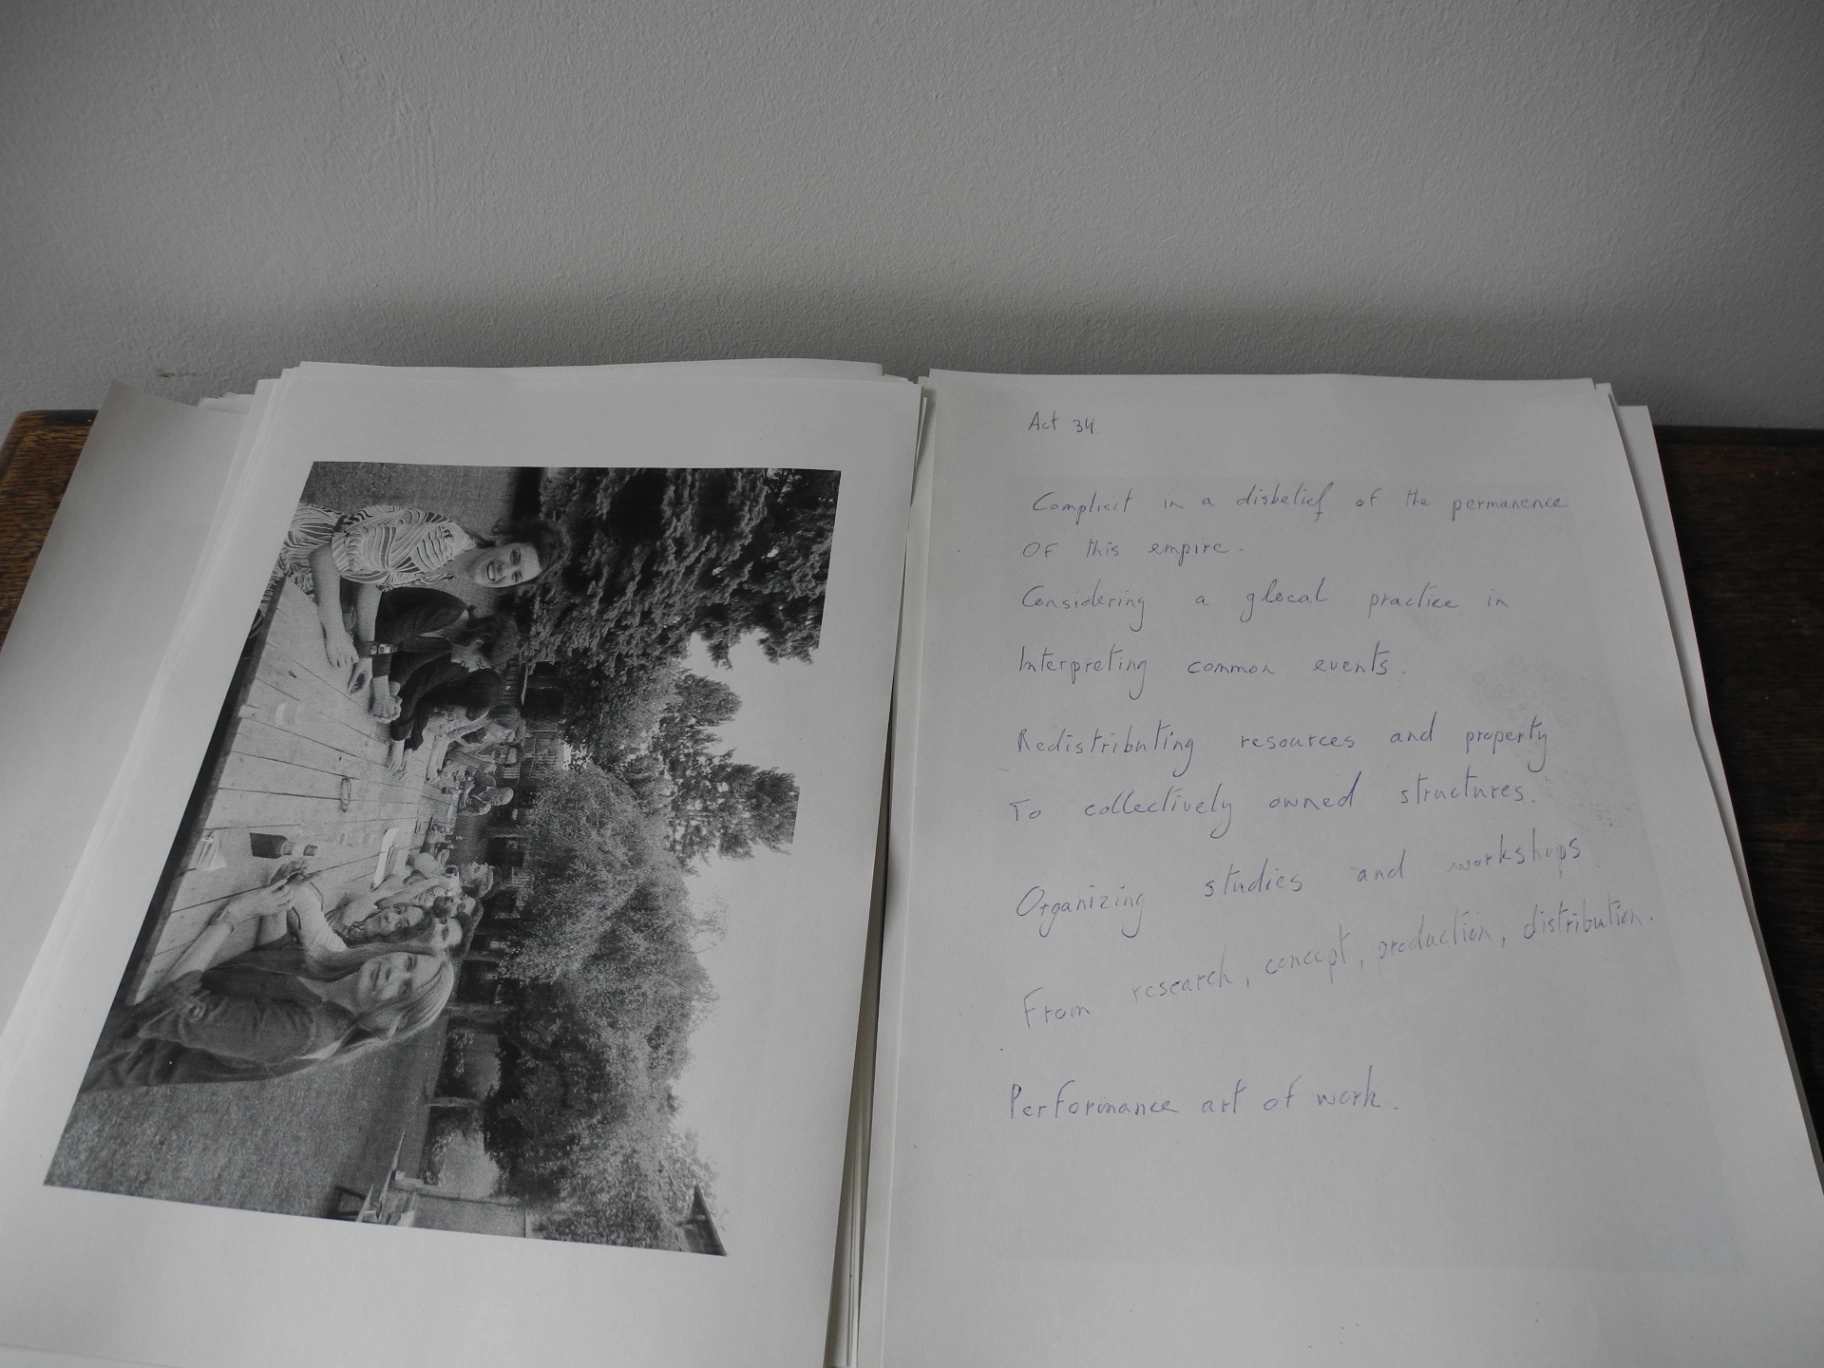 Act 34.
Complicit in a disbelief of the permanence
Of this empire.
Considering a glocal practice in
Interpreting common events.
Redistributing resources and property
To collectively owned structures.
Organizing studies and workshops
From research, concept, production, distribution.
Performance art of work.